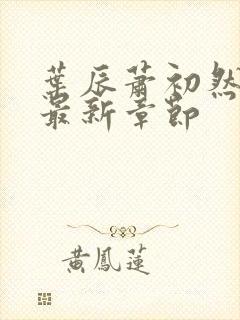 葉辰蕭初然
最新章節
黃鳳蓮